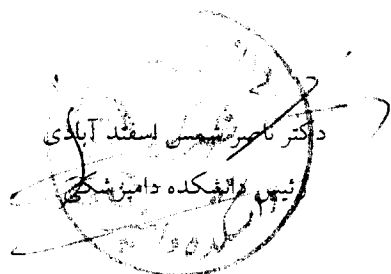 دکتر ناصر شمس اسفند آبادی
رئیس دانشکده دامپزشکی